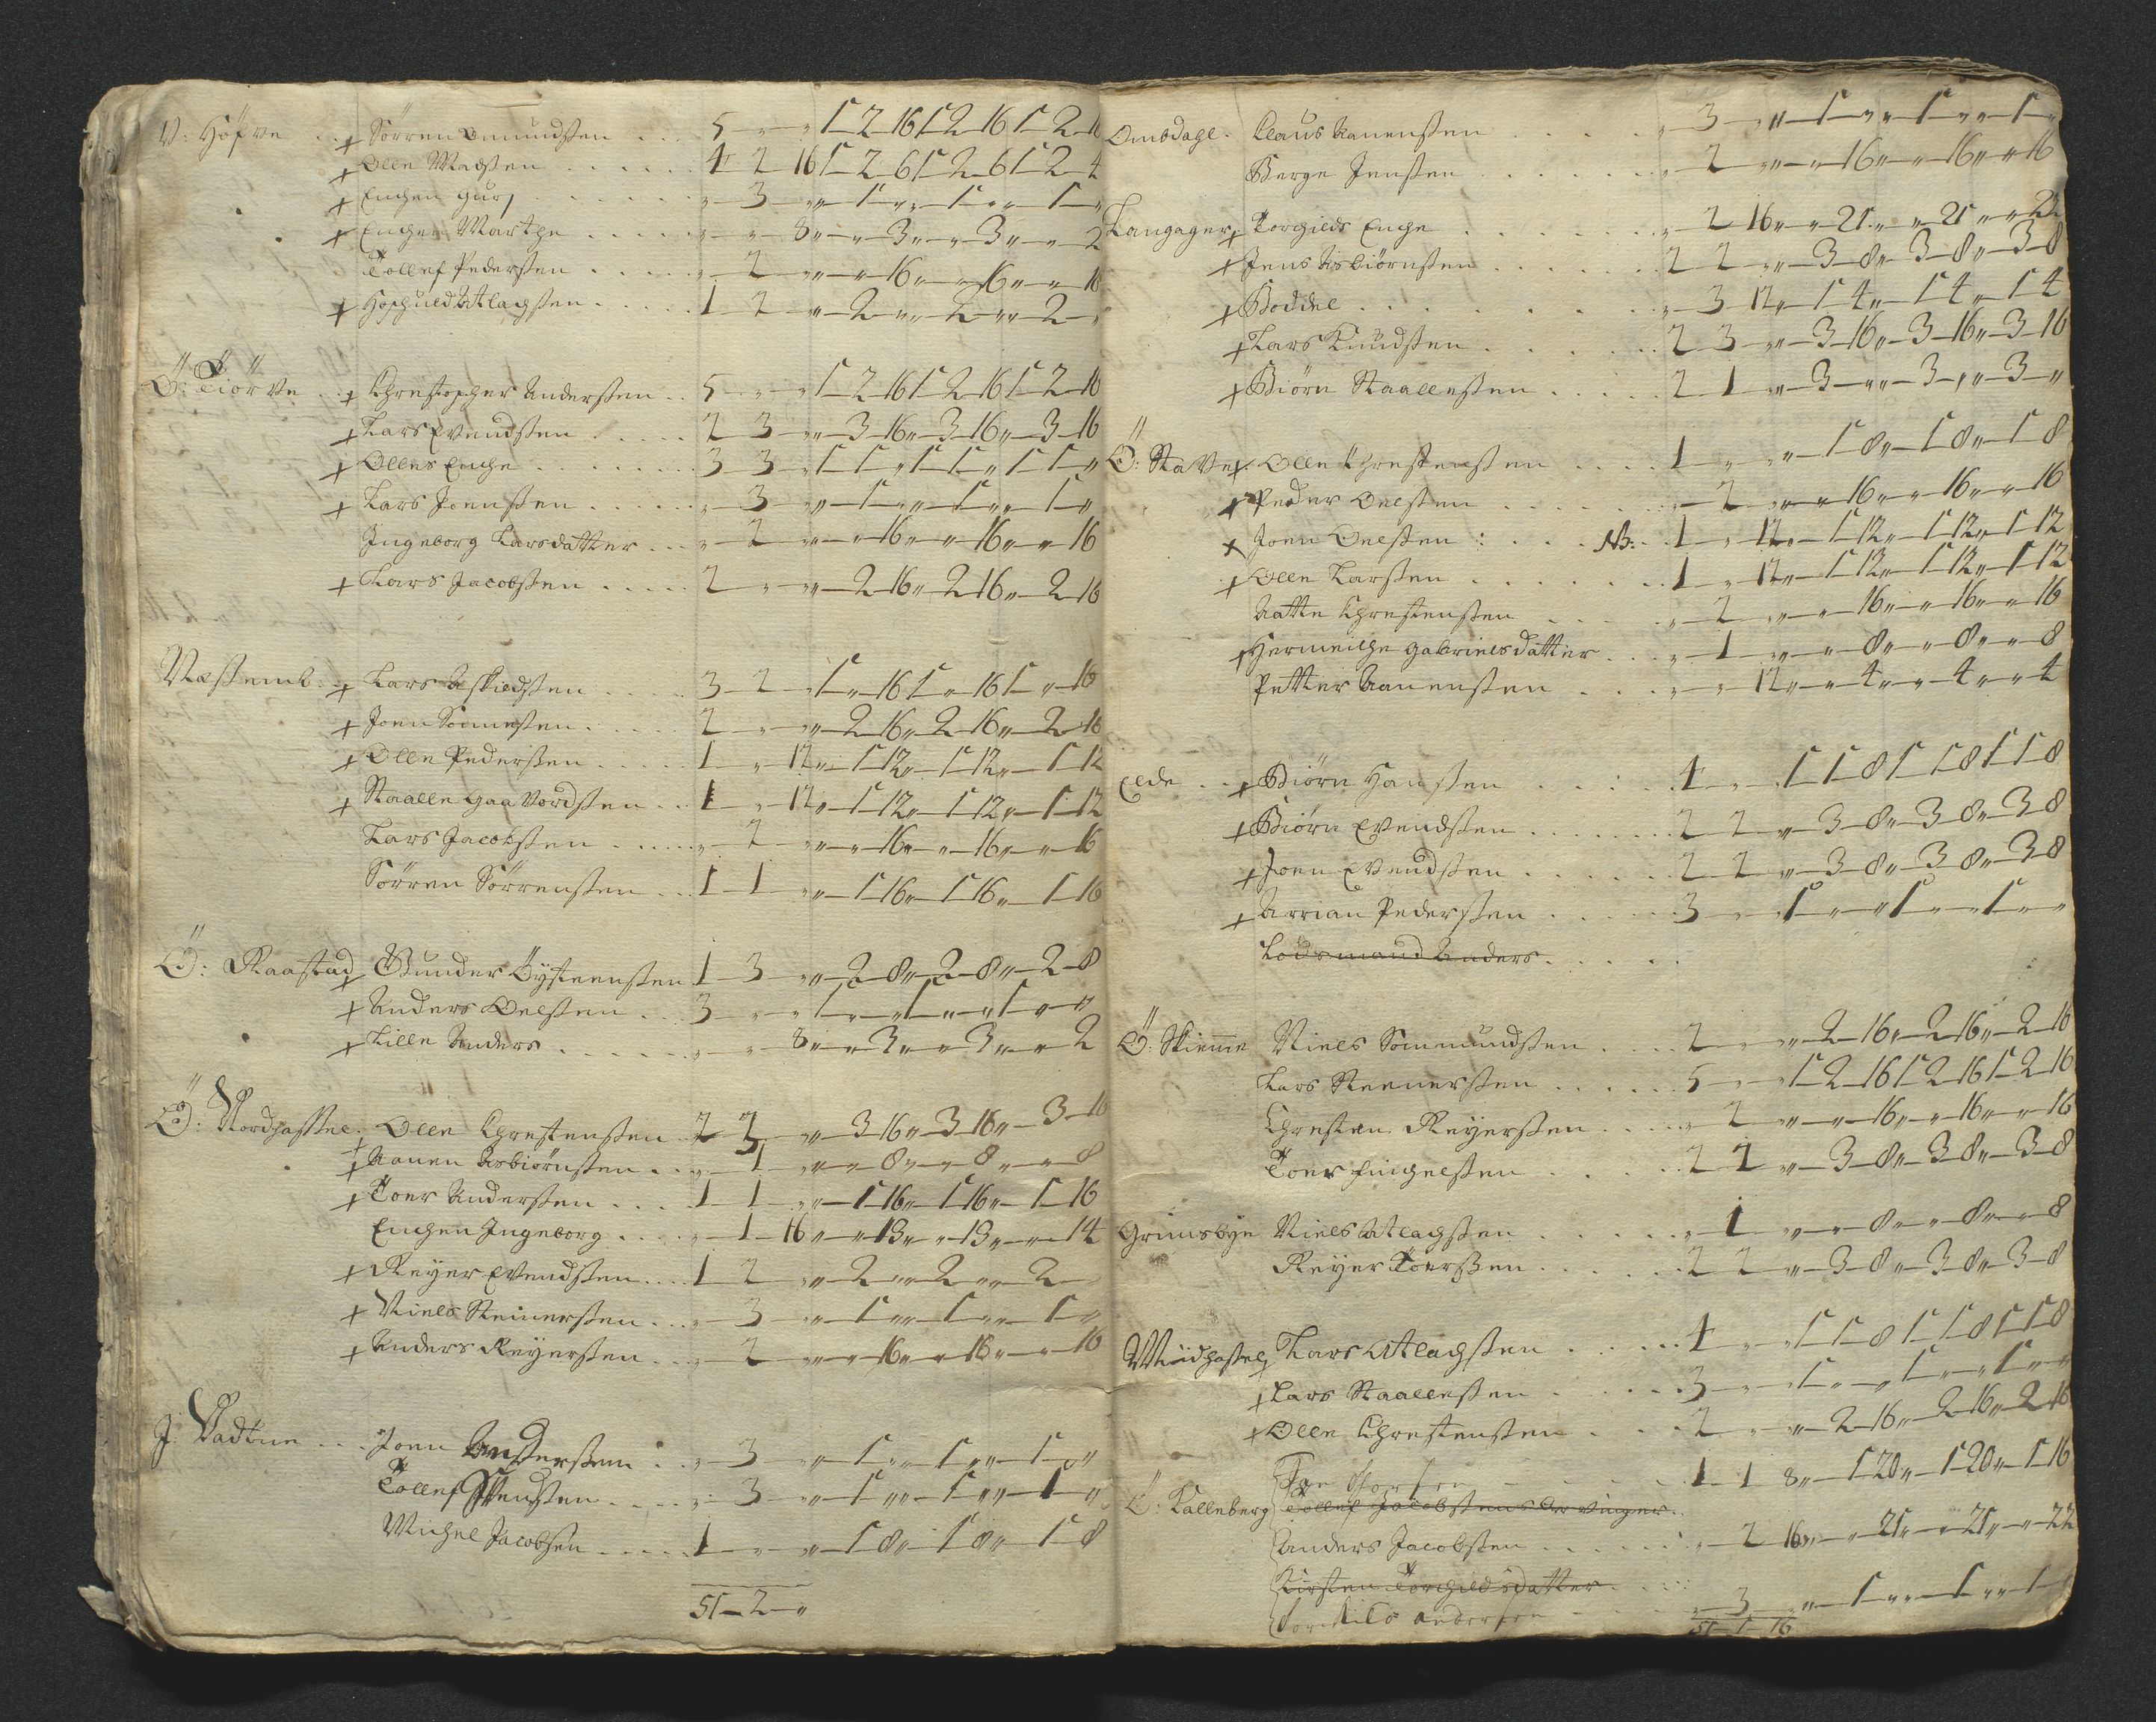 V: Höfve + Sörren Omundsen 5 " " 1 2 16 1 2 16 1 2 16
+ Olle Madsen 4 2 16 1 2 6 1 2 6 1 2 4
+ Enchen gurj " 3 " " 1 " " 1 " " 1 "
+ Enchen Marthe " " 8 " " 3 " " 3 " " 2
Tollef Pedersen " 2 " " " 16 " " 16 " " 16
+ Atlachsen 1 2 " " 2 " " 2 " " 2 "
Ö: Tiörve + Christopher Andersen 5 " " 1 2 16 1 2 16 1 2 16
+ Lars Evendsen 2 3 " " 3 16 " 3 16 " 3 16
+ Olles Enche 3 3 " 1 1 " 1 1 " 1 1 "
+ Lars Joensen " 3 " " 1 " " 1 " " 1 "
Ingeborg Larsdatter " 2 " " " 16 " " 16 " " 16
+ Lars Jacobsen 2 " " " 2 16 " 2 16 " 2 16
Næstemb + Lars Askildsen 3 2 " 1 " 16 1 " 16 1 " 16
+ Joen Sonnesen 2 " " " 2 16 " 2 16 " 2 16
+ Olle Pedersen 1 " 12 " 1 12 " 1 12 " 1 12
+ Staalle gaavordsen 1 " 12 " 1 12 " 1 12 " 1 12
Lars Jacobsen " 2 " " " 16 " " 16 " " 16
Sörren Sörrensen 1 1 " " 1 16 " 1 16 " 1 16
Ö: Raastad + Gunder Öysteensen 1 3 " " 2 8 " 2 8 " 2 8
+ Anders Oelsen 3 " " 1 " " 1 " " 1 " "
+ Lille Anders " " 8 " " 3 " " 3 " " 2
Ö: Nordhassel + Olle Chrestensen 2 3 " " 3 16 " 3 16 " 3 16
+ Aanen Asbiörnsen " 1 " " " 8 " " 8 " " 8
+ Toer Andersen 1 1 " " 1 16 " 1 16 " 1 16
Enchen Ingeborg " 1 16 " " 13 " " 13 " " 14
+ Reyer Evendsen 1 2 " " 2 " " 2 " " 2
+ Niels Steinersen " 3 " " 1 " " 1 " " 1 "
+ Anders Reyersen " 2 " " " 16 " " 16 " " 16
J: Vadtne Joen Andersen " 3 " " 1 " " 1 " " 1 "
Tollef Svendsen " 3 " " 1 " " 1 " " 1 "
Michel Jacobsen 1 " " " 1 8 " 1 8 " 1 8
51 2 "
Ombdahl Claus Aanensen " 3 " " 1 " " 1 " " 1 "
Berge Jensen " 2 " " " 16 " " 16 " " 16
Langager + Torgilds Enche " 2 16 " " 21 " " 21 " " 22
+ Jens Asbiörnsen 2 2 " " 3 8 " 3 8 " 3 8
+ Boddel " 3 12 " 1 4 " 1 4 " 1 4
+ Lars Knudsen 2 3 " " 3 16 " 3 16 " 3 16
+ Biörn Staallesen 2 1 " " 3 " " 3 " " 3 "
Ö: Stave + Olle Chrestensen 1 " " " 1 8 " 1 8 " 1 8
+ Peder Oelsen " 2 " " " 16 " " 16 " " 16
+ Joen Oelsen : NB: 1 " 12 " 1 12 " 1 12 " 1 12
+ Olle Larsen 1 " 12 " 1 12 " 1 12 " 1 12
Aatte Chrestensen " 2 " " " 16 " " 16 " " 16
+ gabrielsdatter " 1 " " " 8 " " 8 " " 8
Petter Aanensen " " 12 " " 4 " " 4 " " 4
Elde + Biörn Hansen 4 " " 1 1 8 1 1 8 1 1 8
+ Biörn Evendsen 2 2 " " 3 8 " 3 8 " 3 8
+ Joen Evendsen 2 2 " " 3 8 " 3 8 " 3 8
+ Arrian Pedersen 3 " " 1 " " 1 " " 1 " "
Lodsmand Anders
Ö: Skienne Niels Sommundsen 2 " " " 2 16 " 2 16 " 2 16
Lars Steenersen 5 " " 1 2 16 1 2 16 1 2 16
Chresten Reyersen " 2 " " " 16 " " 16 " " 16
Toer fingelsen 2 2 " " 3 8 " 3 8 " 3 8
Grimsbye Niels Atlachsen " 1 " " " 8 " " 8 " " 8
Reyer Toersen 2 2 " " 3 8 " 3 8 " 3 8
Midhassel + Lars Atlachsen 4 " " 1 1 8 1 1 8 1 1 8
+ Lars Staallesen 3 " " 1 " " 1 " " 1 " "
+ Olle Chrestensen 2 " " " 2 16 " 2 16 " 2 16
1 1 8 " 1 20 " 1 20 " 1 16
Ö: Kalleberg Tollef Jacobsens Arvinger
Anders Jacobsen " 2 16 " " 21 " " 21 " " 22
Kirsten Torgildsdatter
Nils Andersen " 3 " " 1 " " 1 " " 1
51 1 16